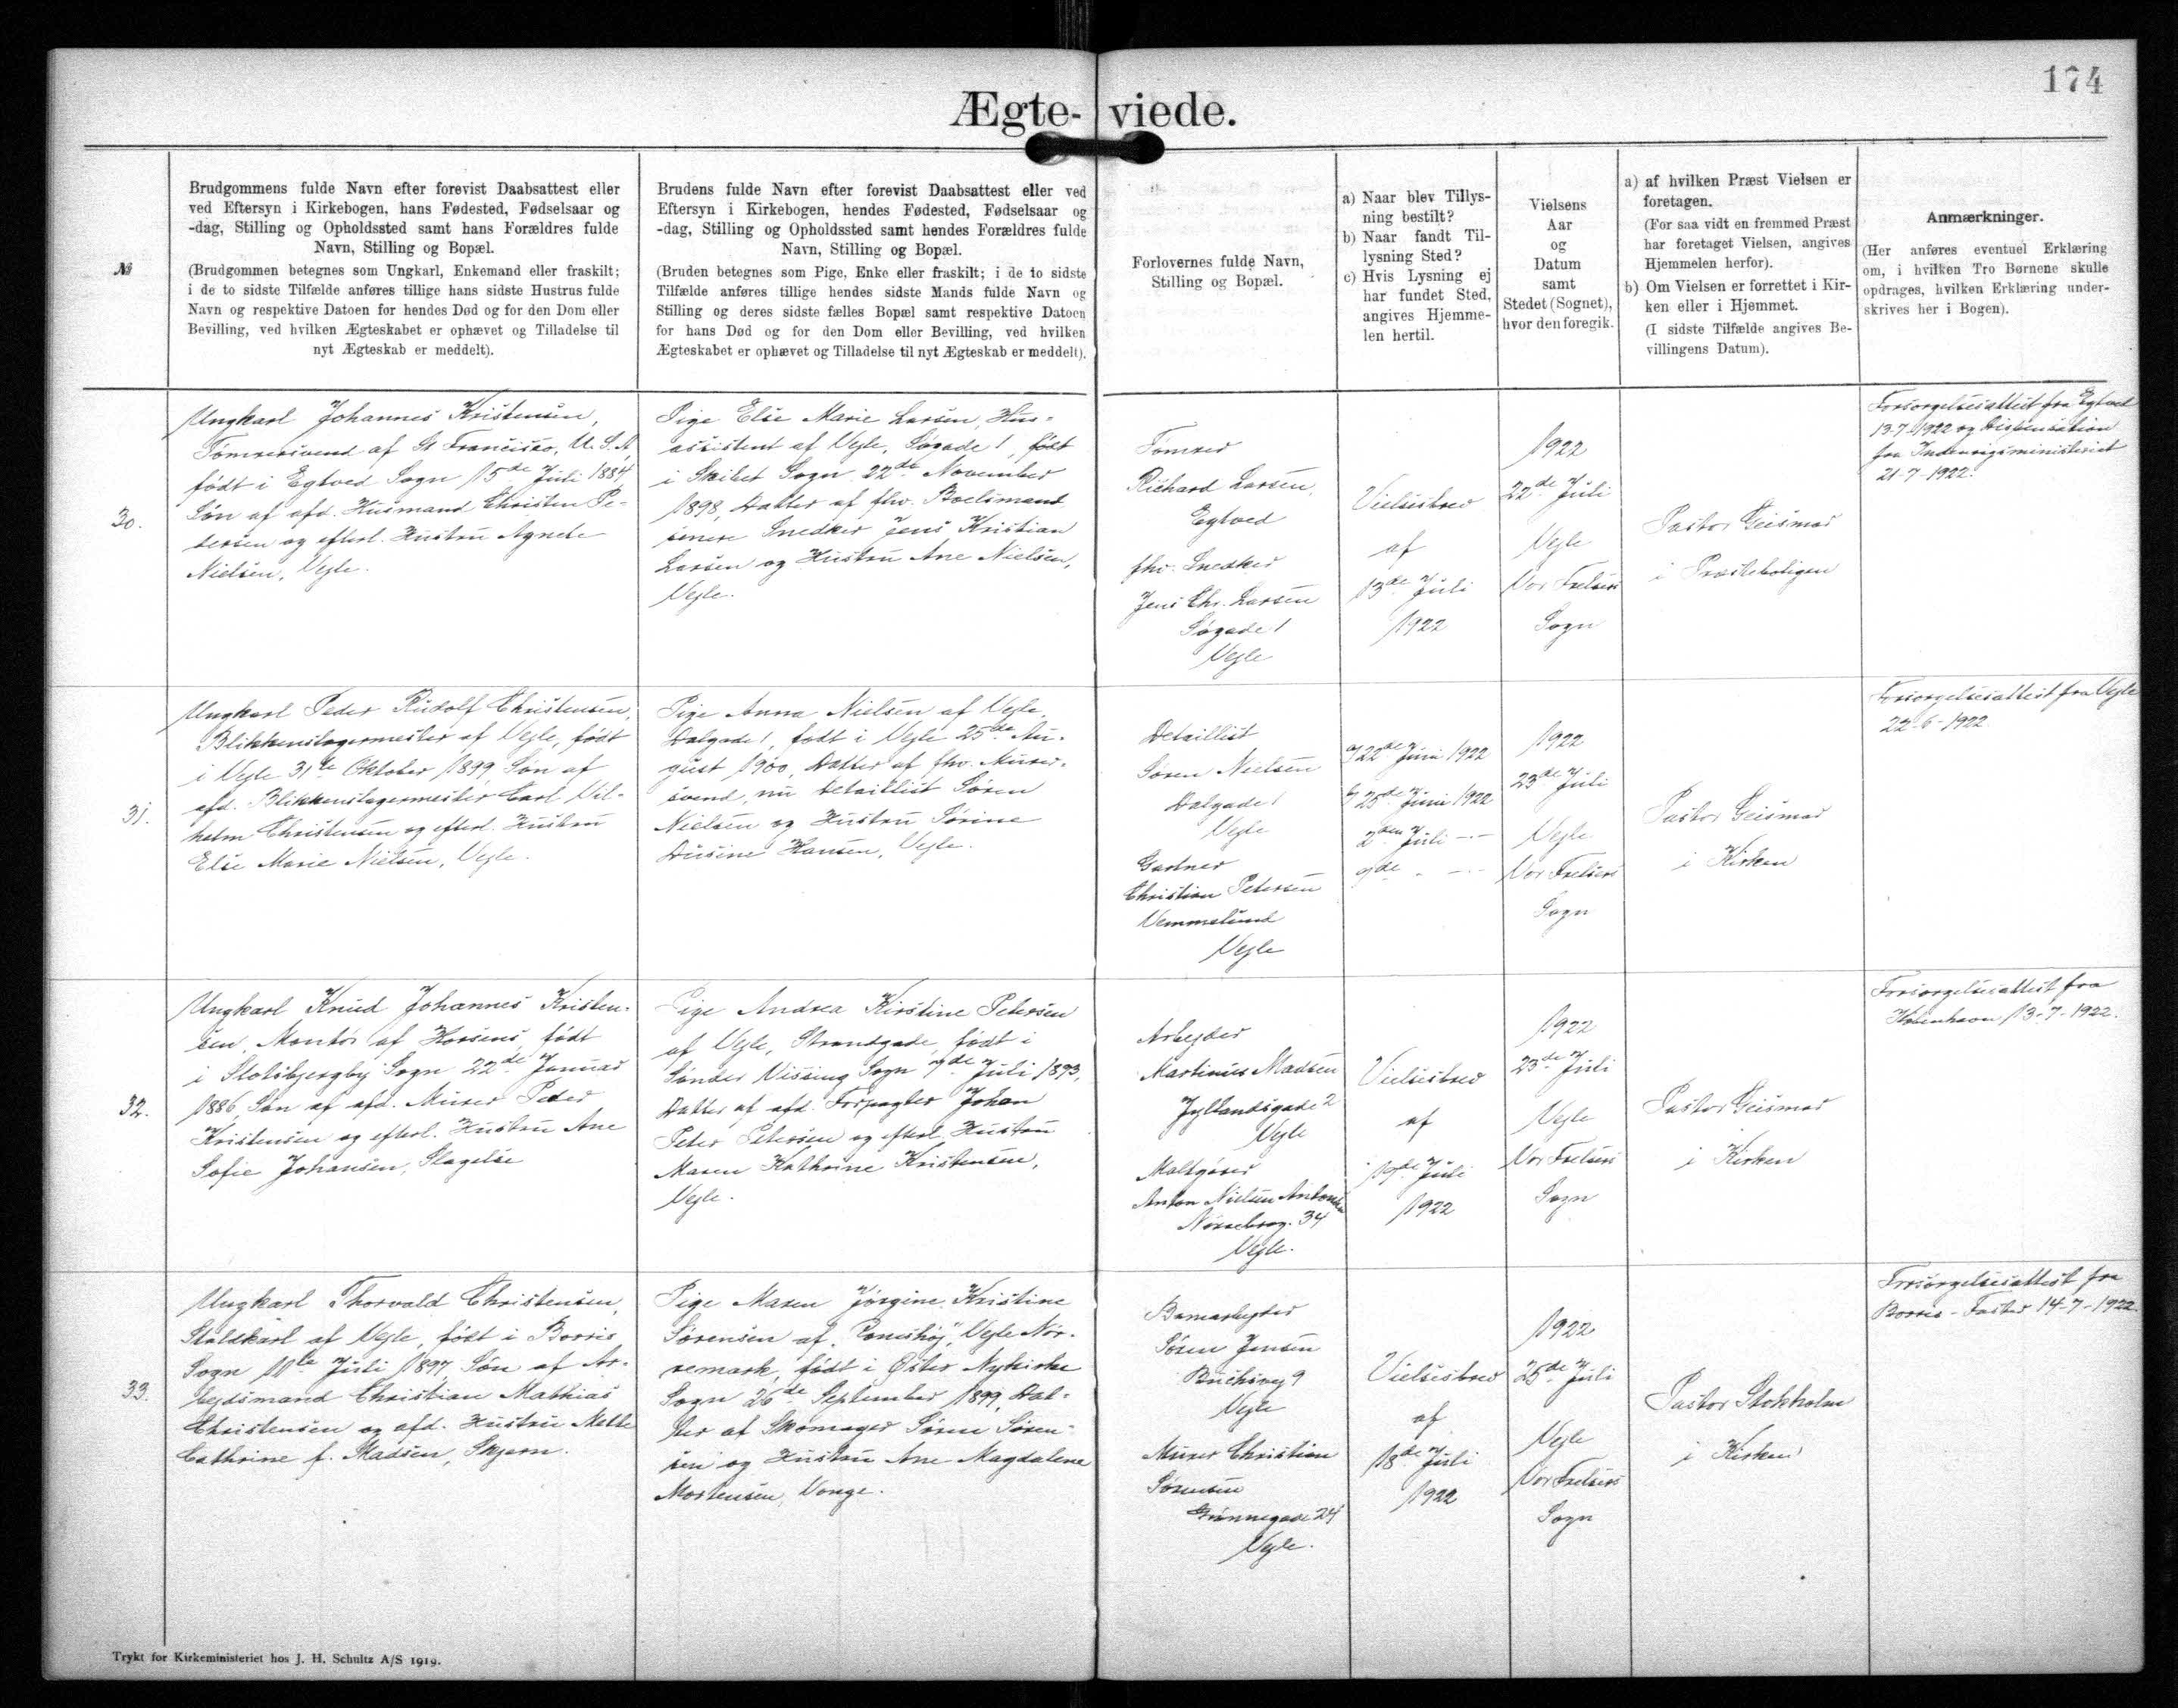 174
Ægte-viede.
№
Brudgommens fulde Navn efter forevist Daabsattest eller
ved Eftersyn i Kirkebogen, hans Fødested, Fødselsaar og
-dag, Stilling og Opholdssted samt hans Forældres fulde
Navn, Stilling og Bopæl.
(Brudgommen betegnes som Ungkarl, Enkemand eller fraskilt;
i de to sidste Tilfælde anføres tillige hans sidste Hustrus fulde
Navn og respektive Datoen for hendes Død og for den Dom eller
Bevilling, ved hvilken Ægteskabet er ophævet og Tilladelse til
nyt Ægteskab er meddelt).
Brudens fulde Navn efter forevist Daabsattest eller ved
Eftersyn i Kirkebogen, hendes Fødested, Fødselsaar og
-dag, Stilling og Opholdssted samt hendes Forældres fulde
Navn, Stilling og Bopæl.
(Bruden betegnes som Pige, Enke eller fraskilt; i de to sidste
Tilfælde anføres tillige hendes sidste Mands fulde Navn og
Stilling og deres sidste fælles Bopæl samt respektive Datoen
for hans Død og for den Dom eller Bevilling, ved hvilken
Ægteskabet er ophævet og Tilladelse til nyt Ægteskab er meddelt).
Forlovernes fulde Navn,
Stilling og Bopæl.
a) Naar blev Tillys-
ning bestilt?
b) Naar fandt Til-
lysning Sted?
c) Hvis Lysning ej
har fundet Sted,
angives Hjemme-
len hertil.
Vielsens
Aar
og
Datum
samt
Stedet (Sognet),
hvor den foregik.
a) af hvilken Præst Vielsen er
foretagen.
(For saa vidt en fremmed Præst
har foretaget Vielsen, angives
Hjemmelen herfor).
b) Om Vielsen er forrettet i Kir-
ken eller i Hjemmet.
(I sidste Tilfælde angives Be-
villingens Datum).
Anmærkninger.
(Her anføres eventuel Erklæring
om, i hvilken Tro Børnene skulle
opdrages, hvilken Erklæring under-
skrives her i Bogen).
30.
Ungkarl Johannes Kristensen,
Tømrersvend af St Francisko, U.S.A,
født i Egtved Sogn 15de Juli 1884,
Søn af afd. Husmand Christen Pe-
dersen og efterl. Hustru Agnete
Nielsen, Vejle.
Pige Else Marie Larsen, Hus-
assistent af Vejle, Søgade 1, født
i Skibet Sogn 22de November
1898, Datter af fhv. Boelsmand
senere Snedker Jens Kristian
Larsen og Hustru Ane Nielsen,
Vejle.
Tømrer
Richard Larsen,
Egtved
fhv. Snedker
Jens Chr. Larsen
Søgade 1
Vejle
Vielsesbrev
af
13de Juli
1922
1922
22de Juli
Vejle
Vor Frelsers
Sogn
Pastor Geismar
i Præsteboligen
Forsørgelsesattest fra Egtved
13-7-1922 og Dispensation
fra Indenrigsministeriet
21-7-1922.
31.
Ungkarl Peder Rudolf Christensen,
Blikkenslagermester af Vejle, født
i Vejle 31te Oktober 1899, Søn af
afd. Blikkenslagermester Carl Vil-
helm Christensen og efterl. Hustru
Else Marie Nielsen, Vejle.
Pige Anna Nielsen af Vejle,
Dalgade 1, født i Vejle 25de Au-
gust 1900, Datter af fhv. Murer-
svend, nu Detaillist Søren
Nielsen og Hustru Sørine
Hansen, Vejle.
Detaillist
Søren Nielsen
Dalgade 1
Vejle
Gartner
Christian Petersen
Vemmelund
Vejle
a/ 22de Juni 1922
b/ 25de Juni 1922
2den Juli - . -
9de - . - - . -
1922
23de Juli
Vejle
Vor Frelsers
Sogn
Pastor Geismar
i Kirken
Forsørgelsesattest fra Vejle
22-6-1922
32.
Ungkarl Knud Johannes Kristen-
sen, Montør af Horsens, født
i Slotsbjergby Sogn 22de Januar
1886, Søn af afd. Murer Peder
Kristensen og efterl. Hustru Ane
Sofie Johansen, Slagelse
Pige Andrea Kirstine Petersen
af Vejle, Strandgade, født i
Sønder Vissing Sogn 7de Juli 1893,
Datter af afd. Forpagter Johan
Peter Petersen og efterl. Hustru
Maren Kathrine Kristensen,
Vejle.
Arbejder
Martinus Madsen
Jyllandsgade 2
Vejle
Maltgører
Anton Nielsen Antonsen
Nørrebrog. 34
Vejle.
Vielsesbrev
af
19de Juli
1922
1922
23de Juli
Vejle
Vor Frelsers
Sogn
Pastor Geismar
i Kirken
Forsørgelsesattest fra
København 13-7-1922.
33.
Ungkarl Thorvald Christensen,
Staldkarl af Vejle, født i Borris
Sogn 11te Juli 1897, Søn af Ar-
bejdsmand Christian Mathias
Christensen og afd. Hustru Mette
Cathrine f. Madsen, Skjern.
Pige Maren Jørgine Kristine
Sørensen af Vejle Nør-
remark, født i Øster Nykirke
Sogn 26de September 1899, Dat-
ter af Skomager Søren Søren-
sen og Hustru Ane Magdalene
Mortensen, Vonge.
Banearbejder
Søren Jensen
Buchsvej 9
Vejle
Murer Christian
Sørensen
Grønnegade 24
Vejle.
Vielsesbrev
af
18de Juli
1922
1922
25de Juli
Vejle
Vor Frelsers
Sogn
Pastor Stokholm
i Kirken
Forsørgelsesattest fra
Borris-Faster 14-7-1922.
Trykt for Kirkeministeriet hos J. H. Schultz A/S 1919.